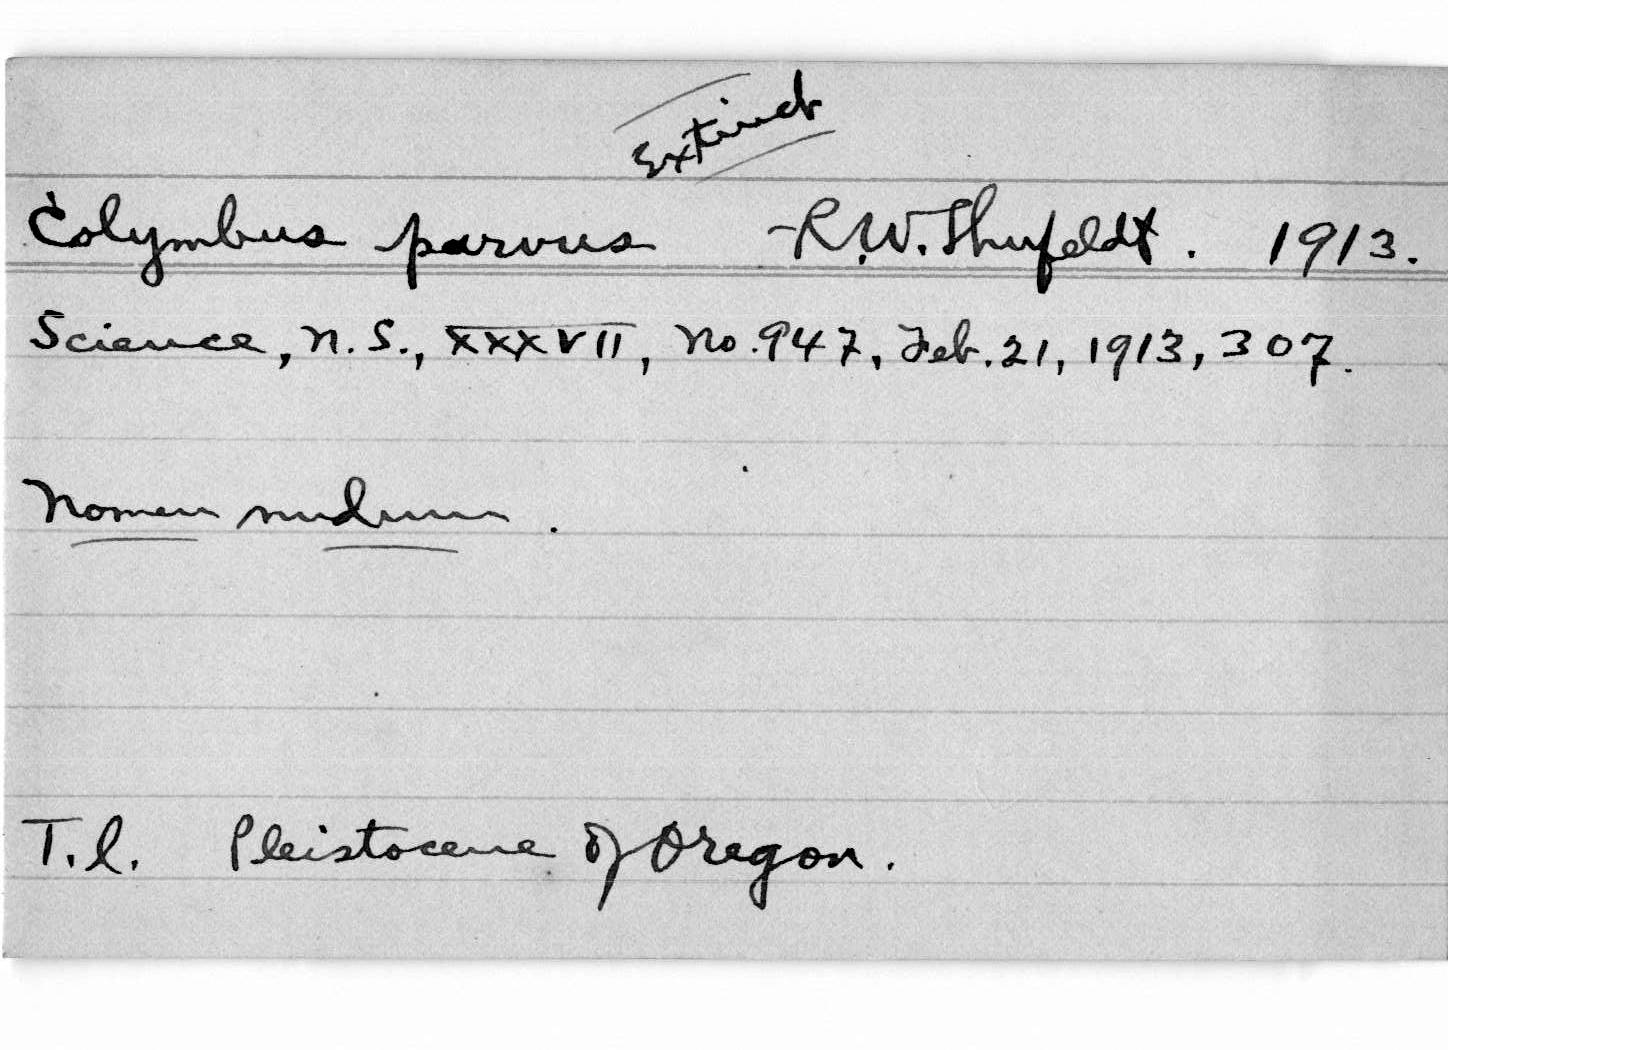 Extinct
Colymbus parvus R.W. Shufeldt. 1913.
Science, N.S., XXXVII, No. 947, Feb. 21, 1913, 307.
Nomen nudum.
T.l. Pleistocene of Oregon.